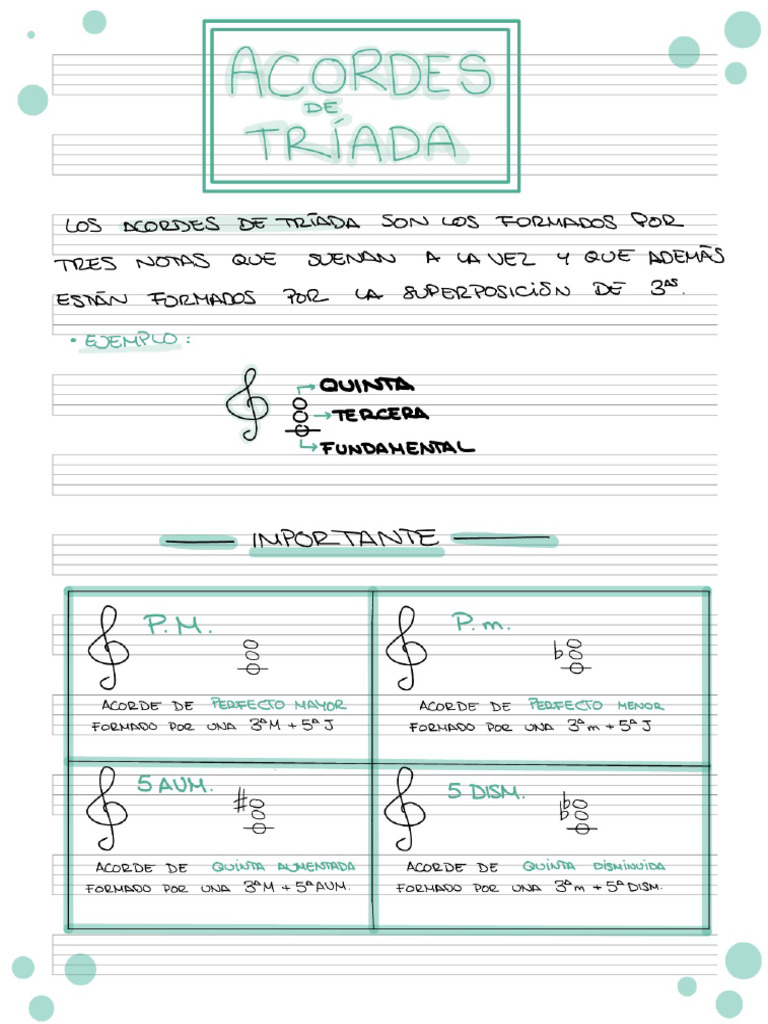 ACORDES
DE
TRÍADA
LOS ACORDES DE TRÍADA SON LOS FORMADOS POR
TRES NOTAS QUE SUENAN A LA VEZ Y QUE ADEMÁS
ESTÁN FORMADOS POR LA SUPERPOSICIÓN DE 3ªˢ.
• EJEMPLO:
QUINTA
TERCERA
FUNDAMENTAL
IMPORTANTE
P.M.
ACORDE DE PERFECTO MAYOR
FORMADO POR UNA 3ªM + 5ªJ
P.m.
ACORDE DE PERFECTO MENOR
FORMADO POR UNA 3ªm + 5ªJ
5 AUM.
ACORDE DE QUINTA AUMENTADA
FORMADO POR UNA 3ªM + 5ªAUM.
5 DISM.
ACORDE DE QUINTA DISMINUIDA
FORMADO POR UNA 3ªm + 5ªDISM.